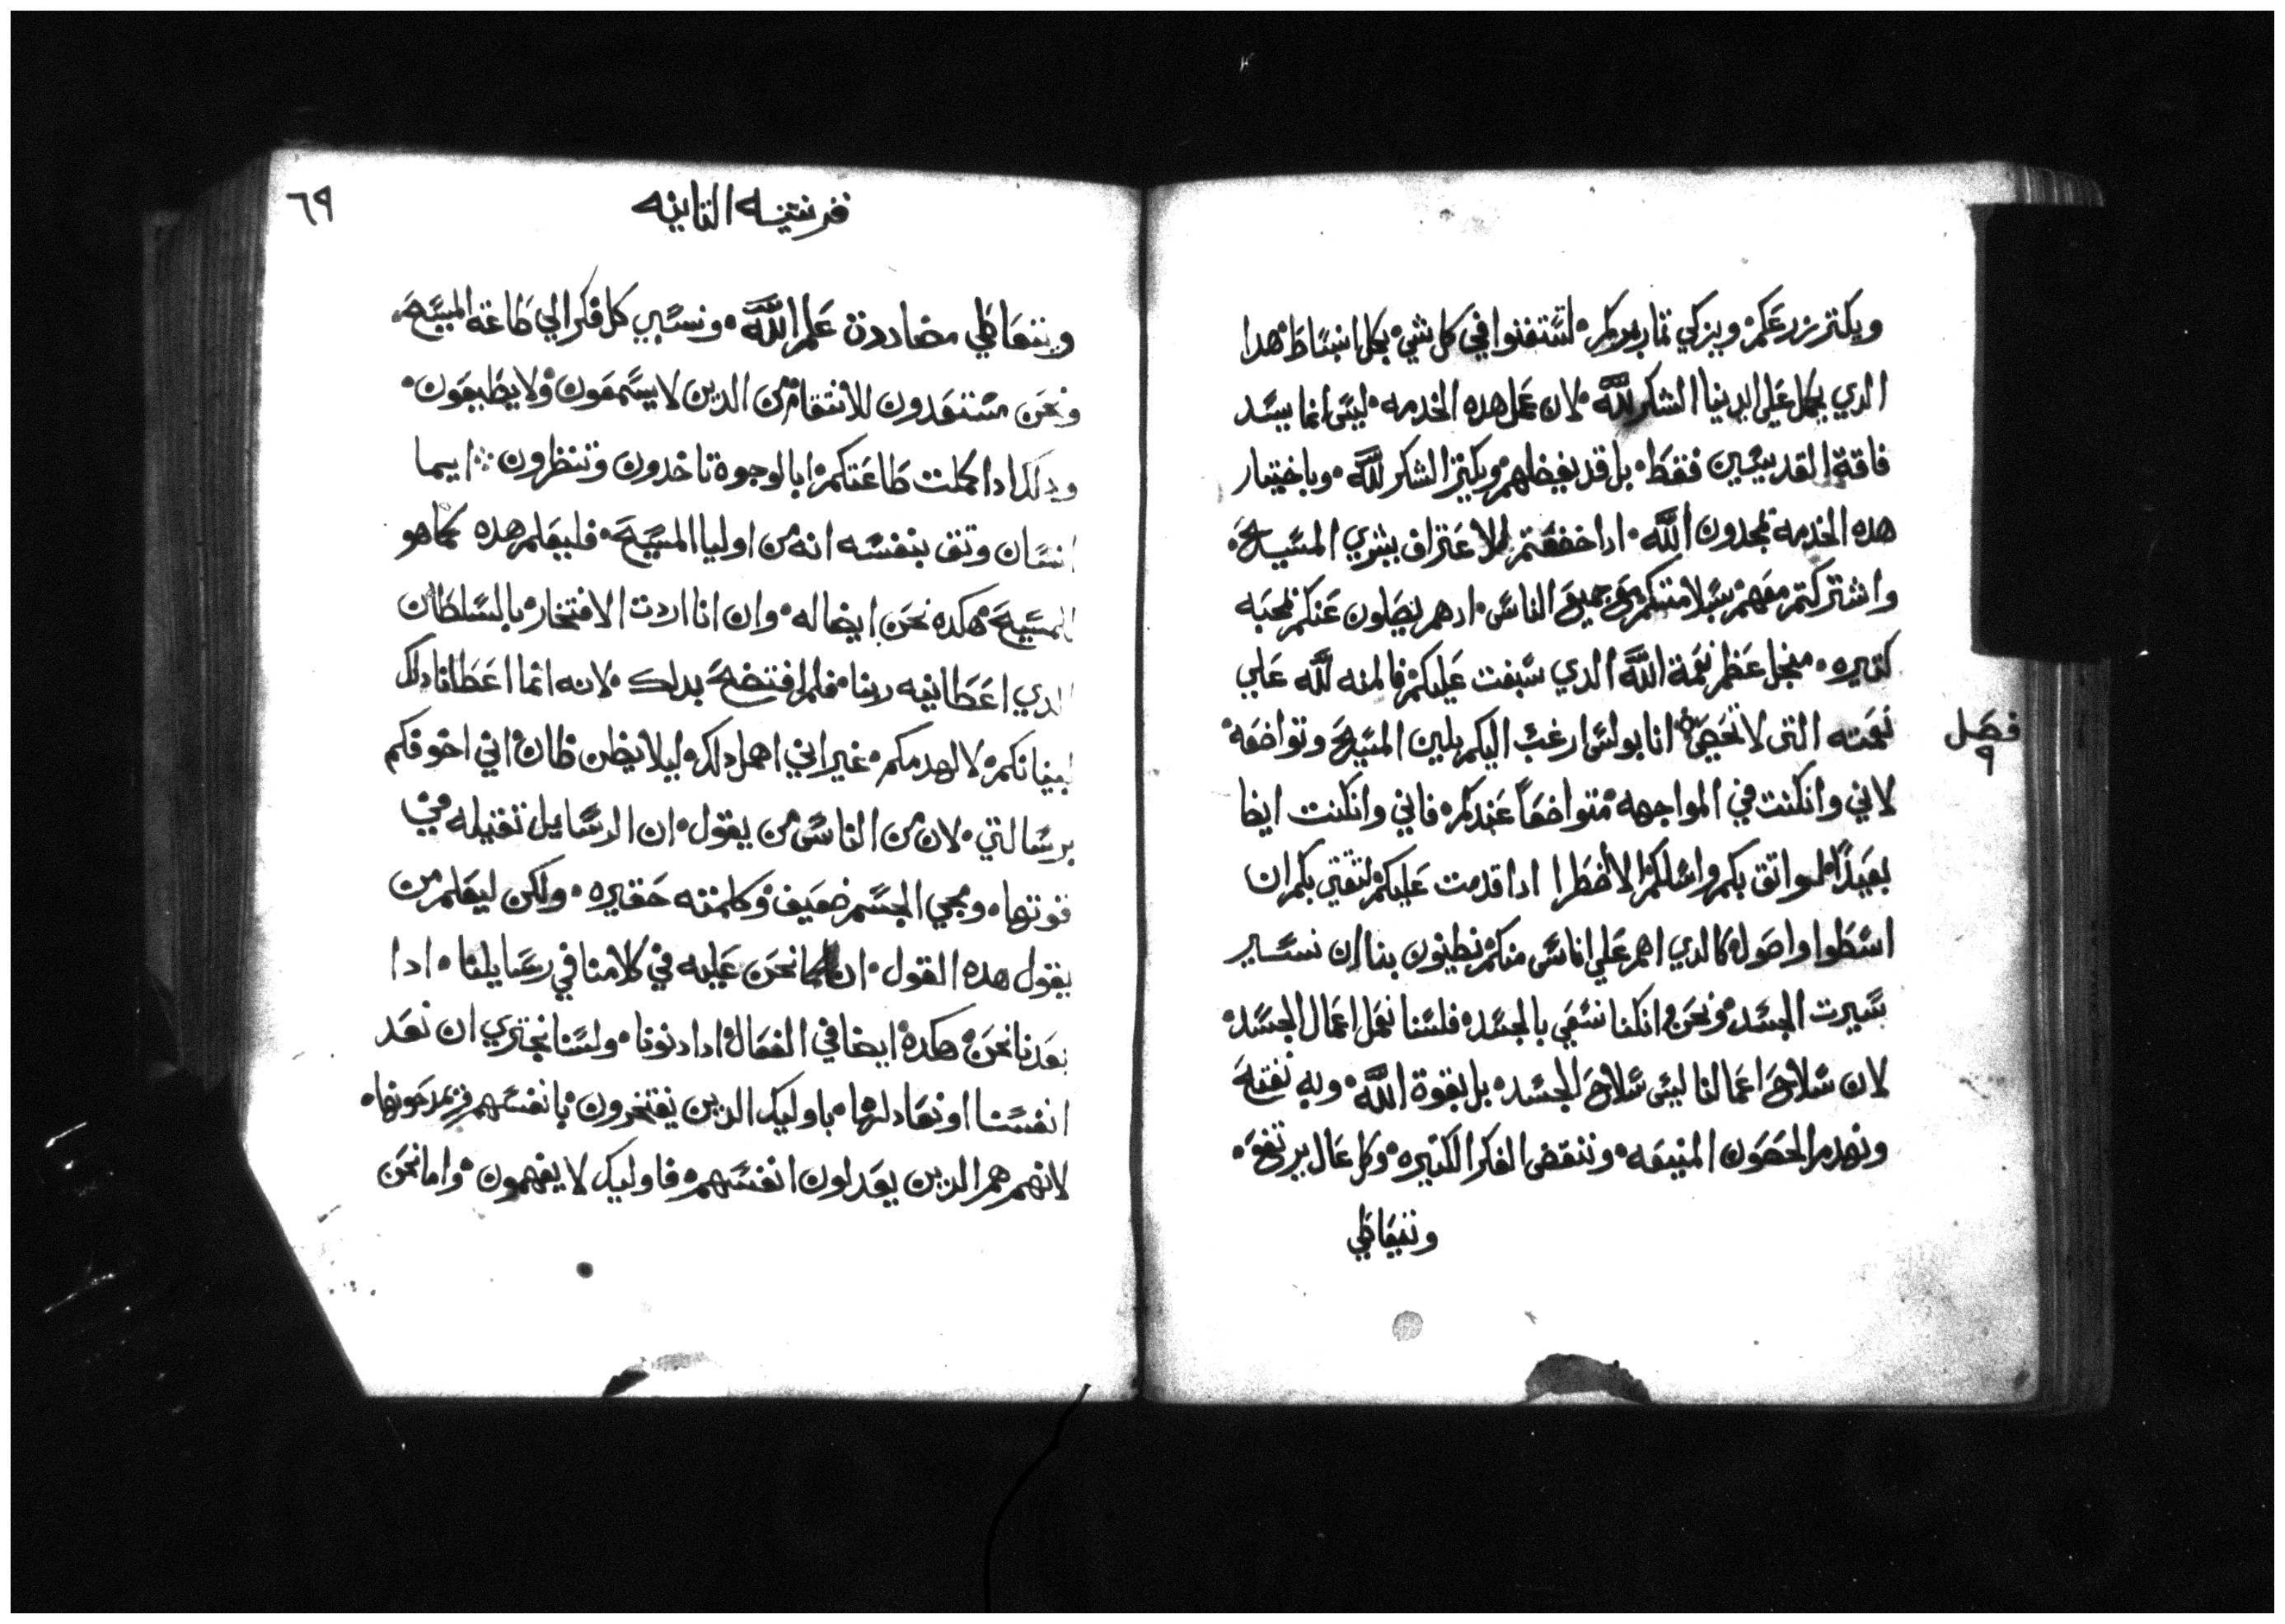 ويكتر زرعكم ويزكي تمار بركم لتستغنوا في كل شي بكل انبساط هدا
الدي يكمل علي ايدينا الشكر لله لان عمل هده الخدمه ليس انما يسد
فاقة القديسين فقط بل قد يفضلهم ويكتر الشكر لله وباختيار
هده الخدمة تمجدون الله ادا خضعتم للاعتراف بشري المسيح
واشتركتم معهم بسلامتكم مع جميع الناس ادهم يصلون عنكم بمحبه
كتيره منجل عظم نعمة الله الدي سبغت عليكم فالمنه لله علي
فصل ٩
نعمته التي لا تحصي انا بولس ارغب اليكم بلين المسيح وتواضعه
لاني وانكنت في المواجهه متواضعاً عندكم فاني وانكنت ايضا
بعيداً لواتق بكم واسلكم الا اضطرا ادا قدمت عليكم لتقتي بكم ان
اسطوا واصول كالدي اهم علي اناس منكم نطنون بنا ان نسير
بسيرت الجسد ونحن وانكنا نسعي بالجسد فلسنا نعمل اعمال الجسد
لان سلاح اعمالنا ليس سلاح الجسد بل بقوة الله وبه نفتح
ونهدم الحصون المنيعه وننقض الفكر الكتيره وكل عال يرتفع
ونتعاطي
٦٩
قرنتيه التانيه
ويتعاطي مضاددة علم الله ونسبي كل فكر الي طاعة المسيح
ونحن مستعدون للانتقام من الدين لا يسمعون ولا يطيعون
ودلك ادا كملت طاعتكم ابالوجوة تاخدون وتنظرون ايما
انسان وتق بنفسه انه من اوليا المسيح فليعلم هده كما هو
للمسيح هكده نحن ايضا له وان انا اردت الافتخار بالسلطان
الدي اعطانيه ربنا فلم افتضح بدلك لانه انما اعطانا دلك
لبنيانكم لا لهدمكم غير اني اهمل دلك ليلا يظن ظان اني اخوفكم
برسالتي لان من الناس من يقول ان الرسايل تقيله في
قوتها ومجي الجسم ضعيف وكلمته حقيره ولكن ليعلم من
يقول هده القول ان كما نحن عليه في كلامنا في رسايلنا ادا
بعدنا نحن هكدة ايضا في الفعال ادا دنونا ولسنا نجتري ان نعد
انفسنا او نعادلها باوليك الدين يفتخرون بانفسهم
لانهم هم الدين يعدلون انفسهم فاوليك لا يفهمون واما نحن